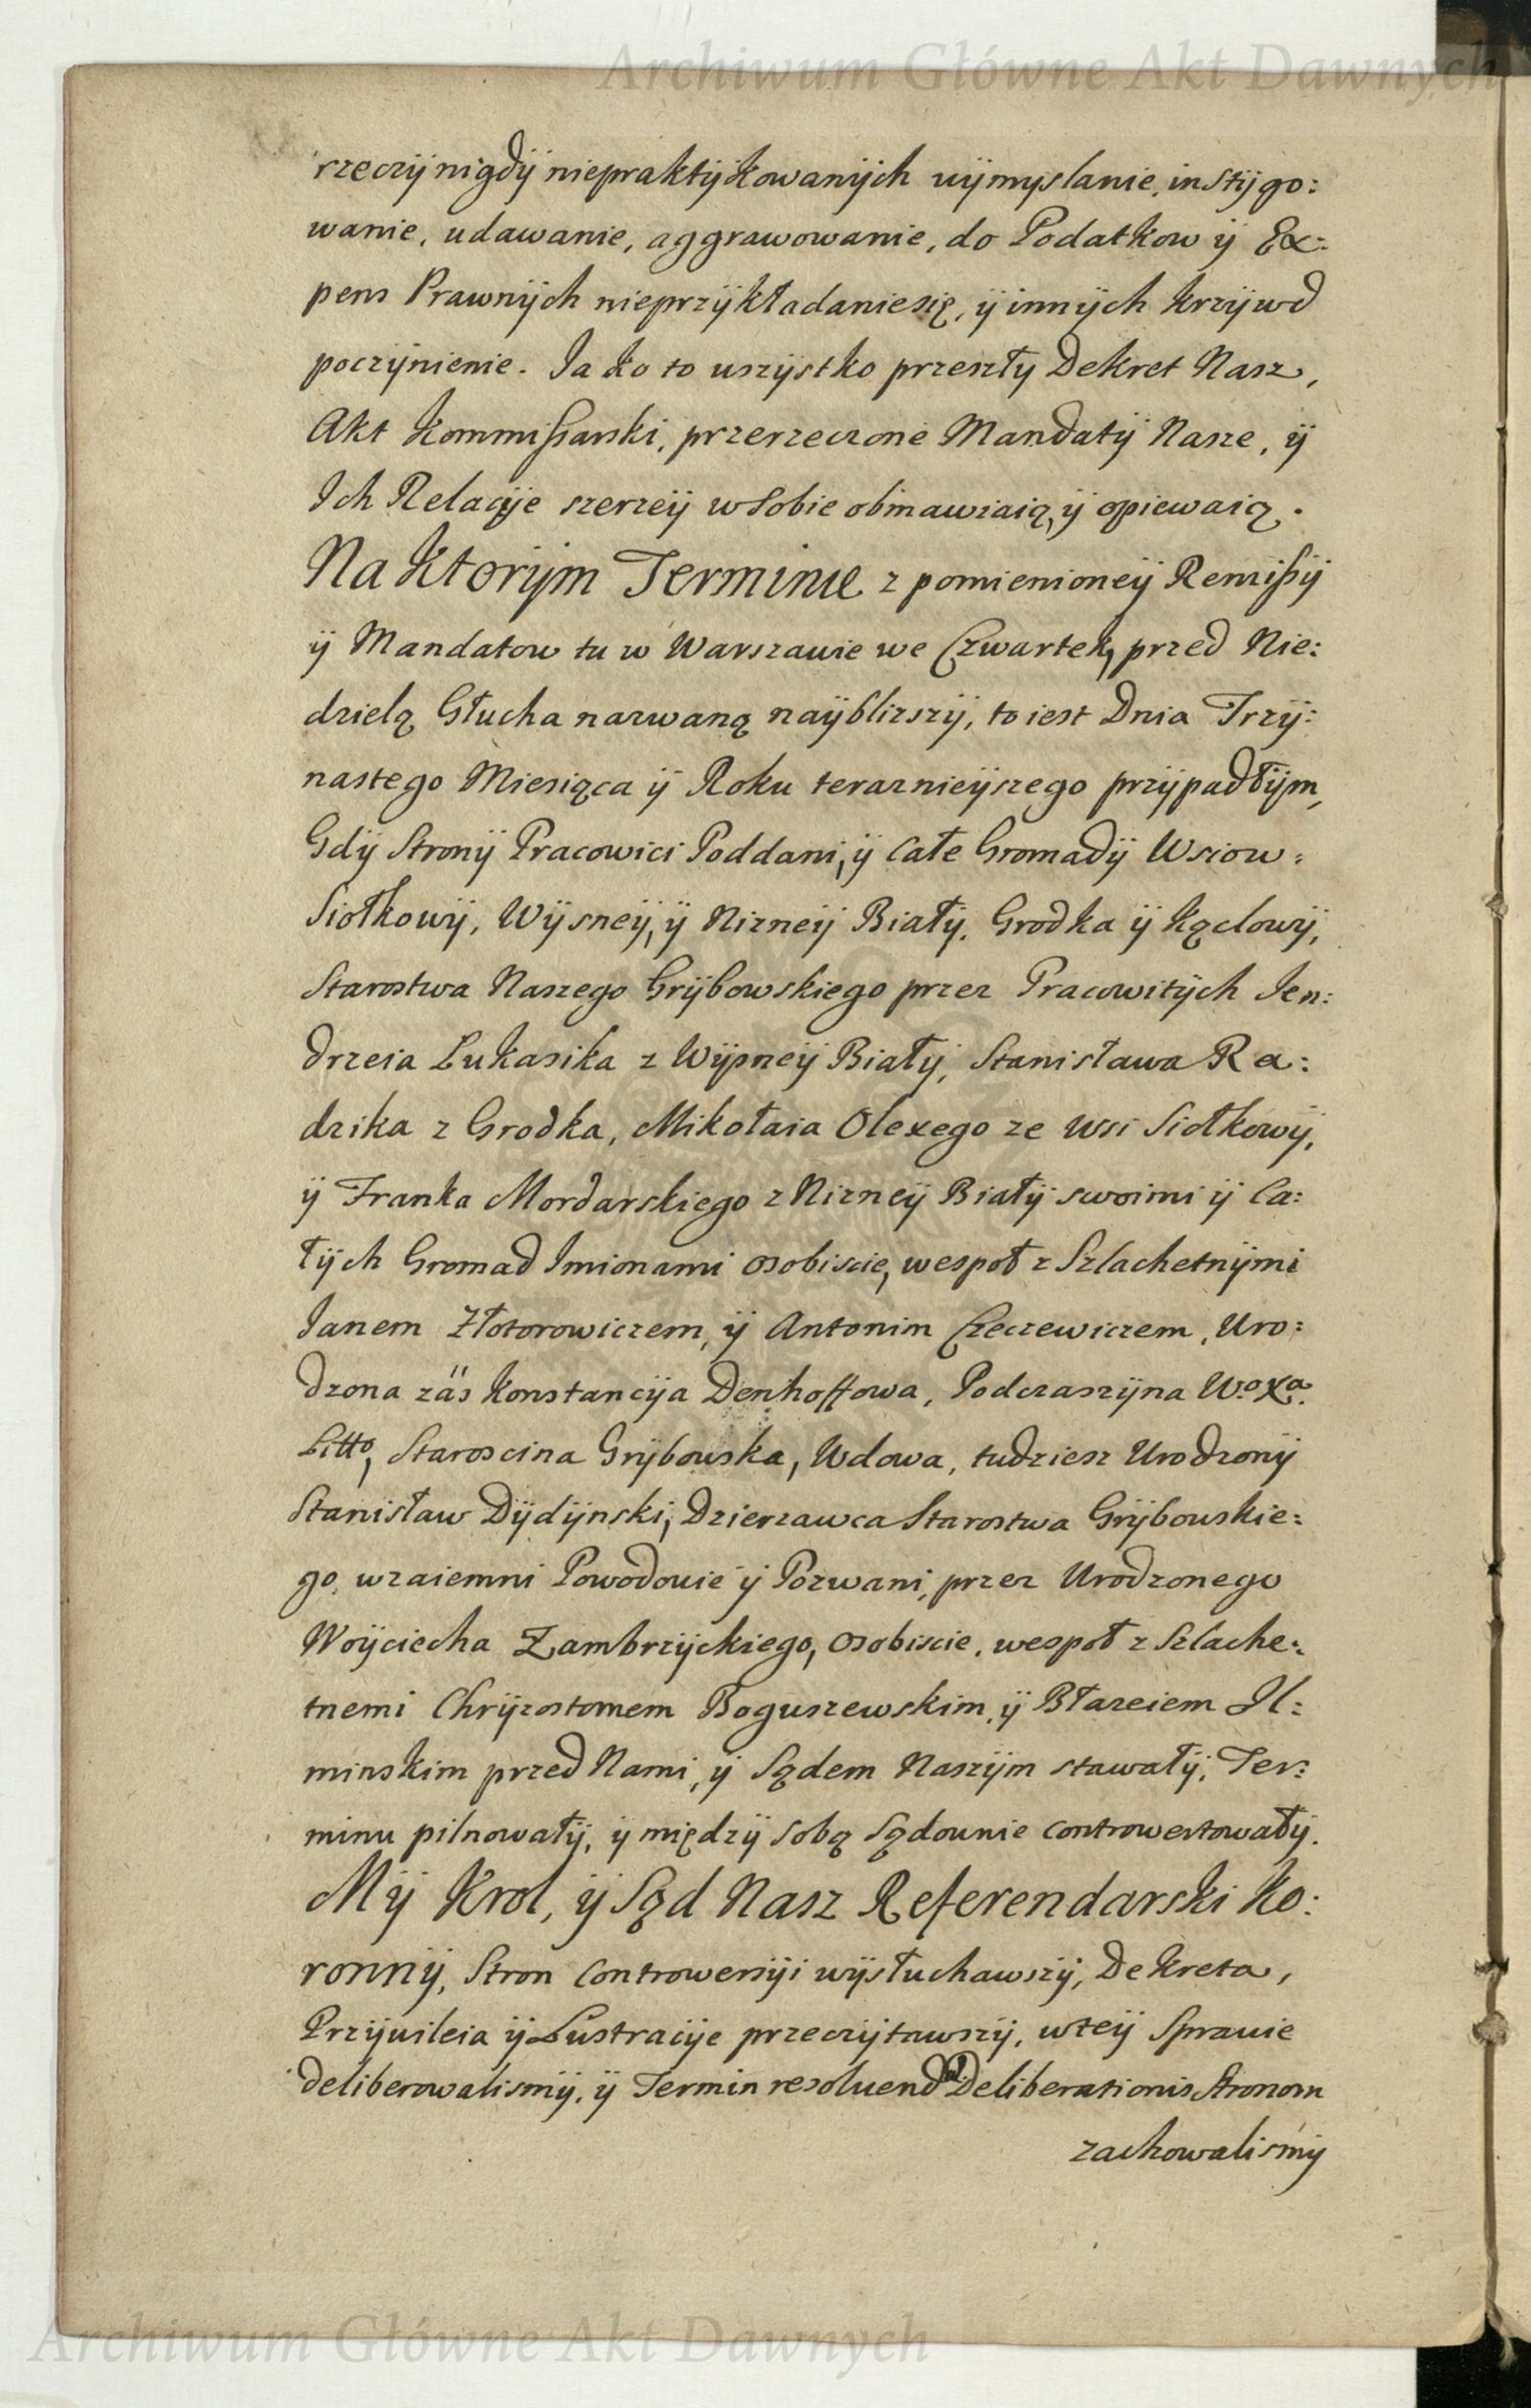 Archiwum Główne Akt Dawnych
rzeczÿ nigdÿ niepraktÿkowanÿch uÿmyslanie, instÿgo:
wanie, udawanie, aggrawowanie, do Podatkow ÿ Ex:
pens Prawnÿch nieprzÿkładaniesię, ÿ innÿch krzÿwd
poczÿnienie. Jako to uszÿstko przeszłÿ Dekret Nasz,
Akt Kommissarski, przerzeczone Mandatÿ Nasze, ÿ
Ich Relacÿje szerzeÿ w Sobie obmawiaią, ÿ opiewaią.
Na Ktorÿm Terminie z pomienioneÿ Remissÿ
ÿ Mandatow tu w Warszawie we Czwartek, przed Nie:
dzielą Głucha nazwaną naÿblizszÿ, to iest Dnia Trzÿ:
nastego Miesiąca ÿ Roku teraznieÿszego przÿpadłÿm,
Gdÿ Stronÿ Pracowici Poddani, ÿ Całe Gromadÿ Wsiow:
Siołkowÿ, Wÿsneÿ, ÿ Nizneÿ Białÿ, Grodka ÿ Kąclowÿ,
Starostwa Naszego Grÿbowskiego przez Pracowitÿch Jen:
drzeia Lukasika z Wÿżneÿ Białÿ, Stanisława Ra:
dzika z Grodka, Mikołaia Olexego ze wsi Siołkowÿ,
ÿ Franka Mordarskiego z Nizneÿ Białÿ swoimi ÿ Ca:
łÿch Gromad Imionami osobiscie, wespoł z Szlachetnÿmi
Janem Złotorowiczem, ÿ Antonim Czeczewiczem, Uro:
dzona zaś Konstancÿa Denhoffowa, Podczaszÿna W.º Xª.
Litto, Staroscina Grÿbowska, Wdowa, tudziesz Urodzonÿ
Stanisław Dÿdÿnski, Dzierzawca Starostwa Grÿbouskie:
go, wzaiemni Powodowie ÿ Pozwani, przez Urodzonego
Woÿciecha Zambrzÿckiego, osobiscie, wespoł z Szlache:
tnemi Chrÿzostomem Boguszewskim, ÿ Błazeiem Jl:
minskim przed Nami, ÿ Sądem Naszÿm stawałÿ, Ter:
minu pilnowałÿ, ÿ międzÿ Sobą Sądounie controwertowałÿ.
Mÿ Krol, ÿ Sąd Nasz Referendarski Ko:
ronnÿ, Stron Controwersÿi wÿsłuchawszÿ, Dekreta,
Przÿuileia ÿ Lustracÿje przeczÿtawszÿ, wteÿ Sprauie
deliberowalismÿ, ÿ Termin resoluend Deliberationis Stronom
zachowalismÿ
Archiwum Główne Akt Dawnych